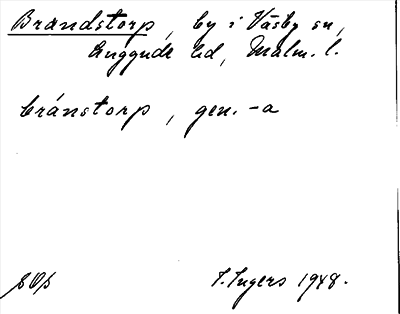 Brandstorp, by i Väsby sn,
Luggude hd, Malm. l.
bránstorp, gen. -a
I. Ingers 1948.